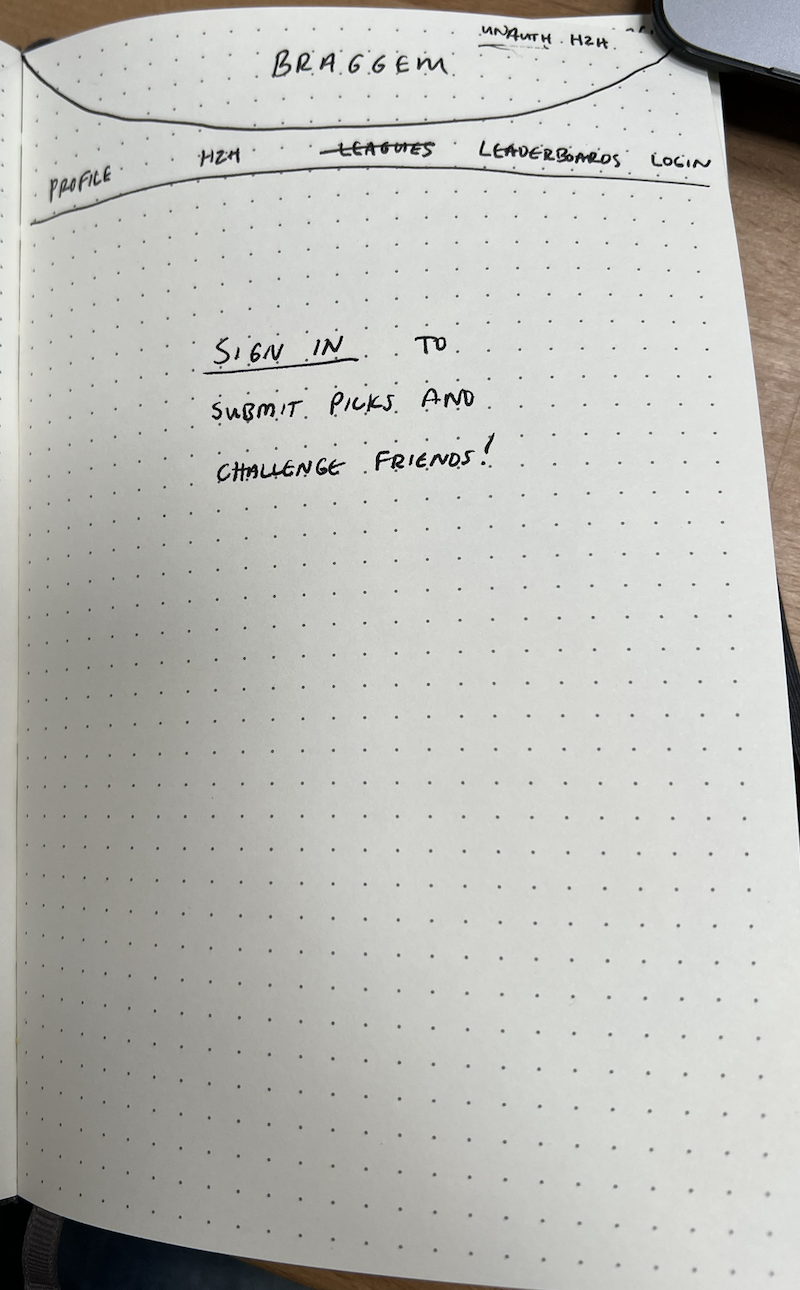 UNAUTH H2H
BRAGGEM
PROFILE H2H LEAGUES LEADERBOARDS LOGIN
SIGN IN TO
SUBMIT PICKS AND
CHALLENGE FRIENDS!